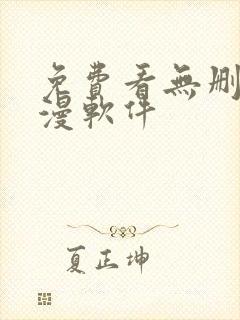 免費看無刪
漫軟件
夏正坤